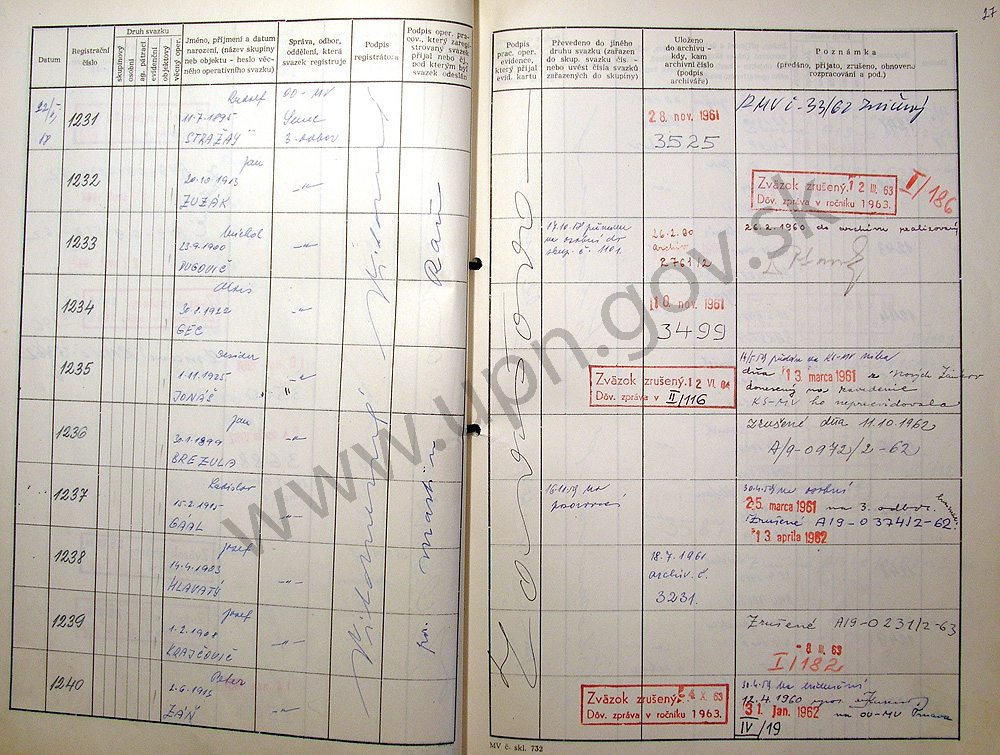 27
Datum
Registrační číslo
Druh svazku
skupinový
osobní
ag. pátrací
evidenční
objektový
věcný oper.
Jméno, příjmení a datum
narození, (název skupiny
neb objektu - heslo věc-
ného operativního svazku)
Správa, odbor,
oddělení, která
svazek registruje
Podpis
registrátora
Podpis oper. pra-
cov., který zareg-
istrovaný svazek
přijal nebo čj.,
pod kterým byl
svazek odeslán
Podpis
prac. oper.
evidence,
který přijal
evid. kartu
Převedeno do jiného
druhu svazku (zařazen
do skup. svazku čís. -
nebo uvést čísla svazků
zařazených do skupiny)
Uloženo
do archivu -
kdy, kam
archivní číslo
(podpis
archiváře)
Poznámka
(předáno, přijato, zrušeno, obnoveno
rozpracování a pod.)
1231
Rudolf
11.7.1895
STRAŽAY
OO-MV
Senec
3. odbor
28. nov. 1961
3525
RMV č. 33/62
1232
Jan
20.10.1913
ZUZÁK
-"-
Zväzok zrušený. 12 III. 63
Dôv. zpráva v ročníku 1963.
I/186
1233
Michal
23.9.1900
DUGOVIČ
-"-
skup. č. 1101.
26.2.60
archív
2761/2
26.2.1960 do archívu realizovaný
1234
30.1.1922
GEC
-"-
10. nov. 1961
3499
1235
Desider
1.11.1925
JONÁŠ
-"-
Zväzok zrušený. 12 VI. 64
Dôv. zpráva v II/116
dňa 13 marca 1961 z Nových Zámkov
donesený na zavedenie
KS-MV ho neprevidovala
1236
Jan
30.1.1899
BREZULA
-"-
Zrušené dňa 11.10.1962
A/9-0972/2-62
1237
Ladislav
15.2.1915
GAAL
-"-
16.10.59 na
pozorovací
30.4.59 na osobní
25. marca 1961 na 3. odbor.
Zrušené A19-0374/2-62
13 apríla 1962
1238
Jozef
14.4.1903
HLAVATÝ
-"-
18.7.1961
archív. č.
3231.
1239
Jozef
1.2.1908
KRAJČOVIČ
-"-
Zrušené A/9-0231/2-63
-8. III. 63
I/182
1240
Peter
2.6.1913
ZÁŇ
-"-
Zväzok zrušený. 4 X. 63
Dôv. zpráva v ročníku 1963.
12.4.1960
31. jan. 1962 na OO-MV Trnava
IV/19
MV č. skl. 732
www.upn.gov.sk